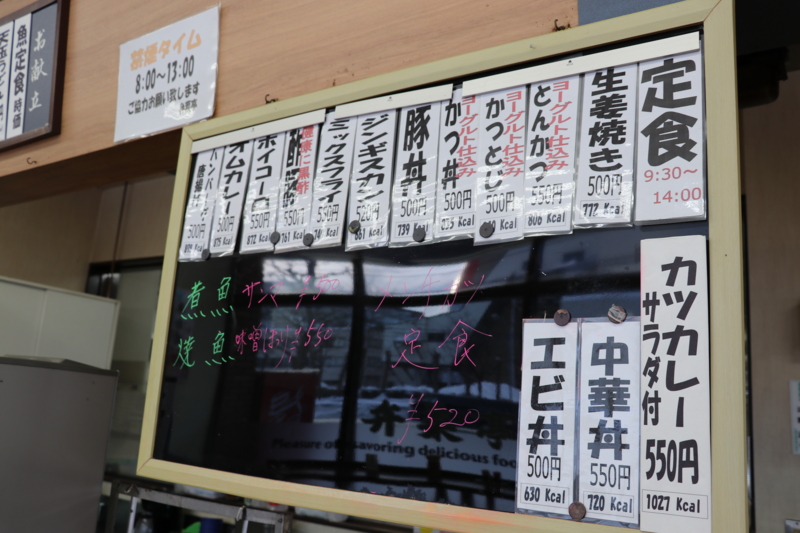 お献立
魚定食 時価
禁煙タイム
8:00〜13:00
ご協力お願い致します
定食
9:30〜
14:00
生姜焼き
500円
772 Kcal
ヨーグルト仕込み
とんかつ
550円
806 Kcal
ヨーグルト仕込み
かつとじ
500円
Kcal
ヨーグルト仕込み
かつ丼
500円
Kcal
豚丼
500円
739
ジンギスカン
520円
861 Kcal
ミックスフライ
550円
Kcal
健康に黒酢
酢豚
550円
761 Kcal
ホイコーロ
550円
872 Kcal
オムカレー
500円
875 Kcal
ハンバーグ
500円
煮魚 サンマ
焼魚 味噌ほっけ ¥550
メンチカツ
定食
¥520
エビ丼
500円
630 Kcal
中華丼
550円
720 Kcal
カツカレー
サラダ付
550円
1027 Kcal
Pleasure of savoring delicious foo